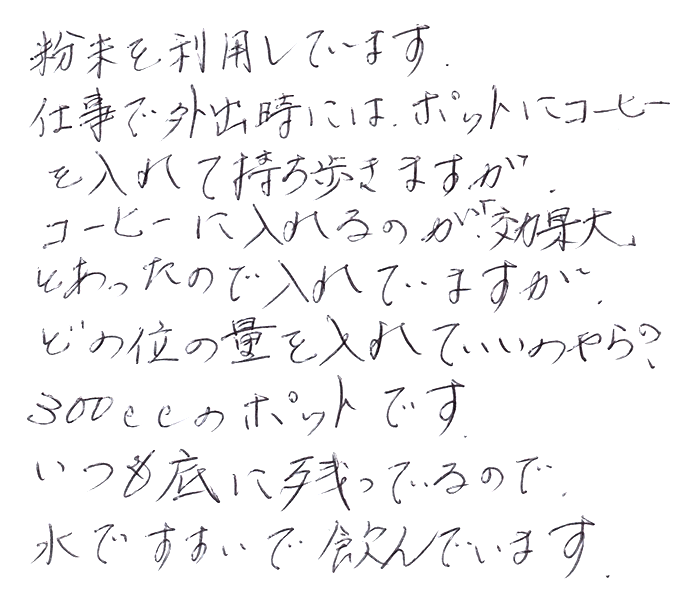 粉末を利用しています.
仕事で外出時には、ポットにコーヒー
を入れて持ち歩きますが、
コーヒーに入れるのが「効果大」
とあったので入れていますが、
どの位の量を入れていいのやら?
300ccのポットです.
いつも底に残っているので、
水ですすいで飲んでいます.